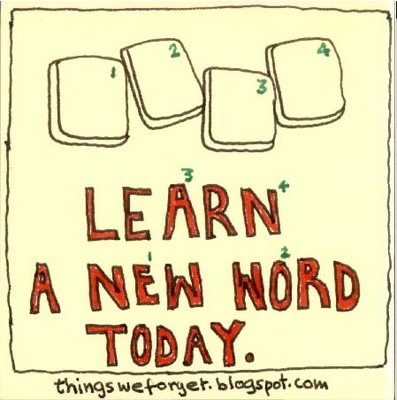 1 2 3 4
3 4
LEARN
1 2
A NEW WORD
TODAY.
thingsweforget.blogspot.com